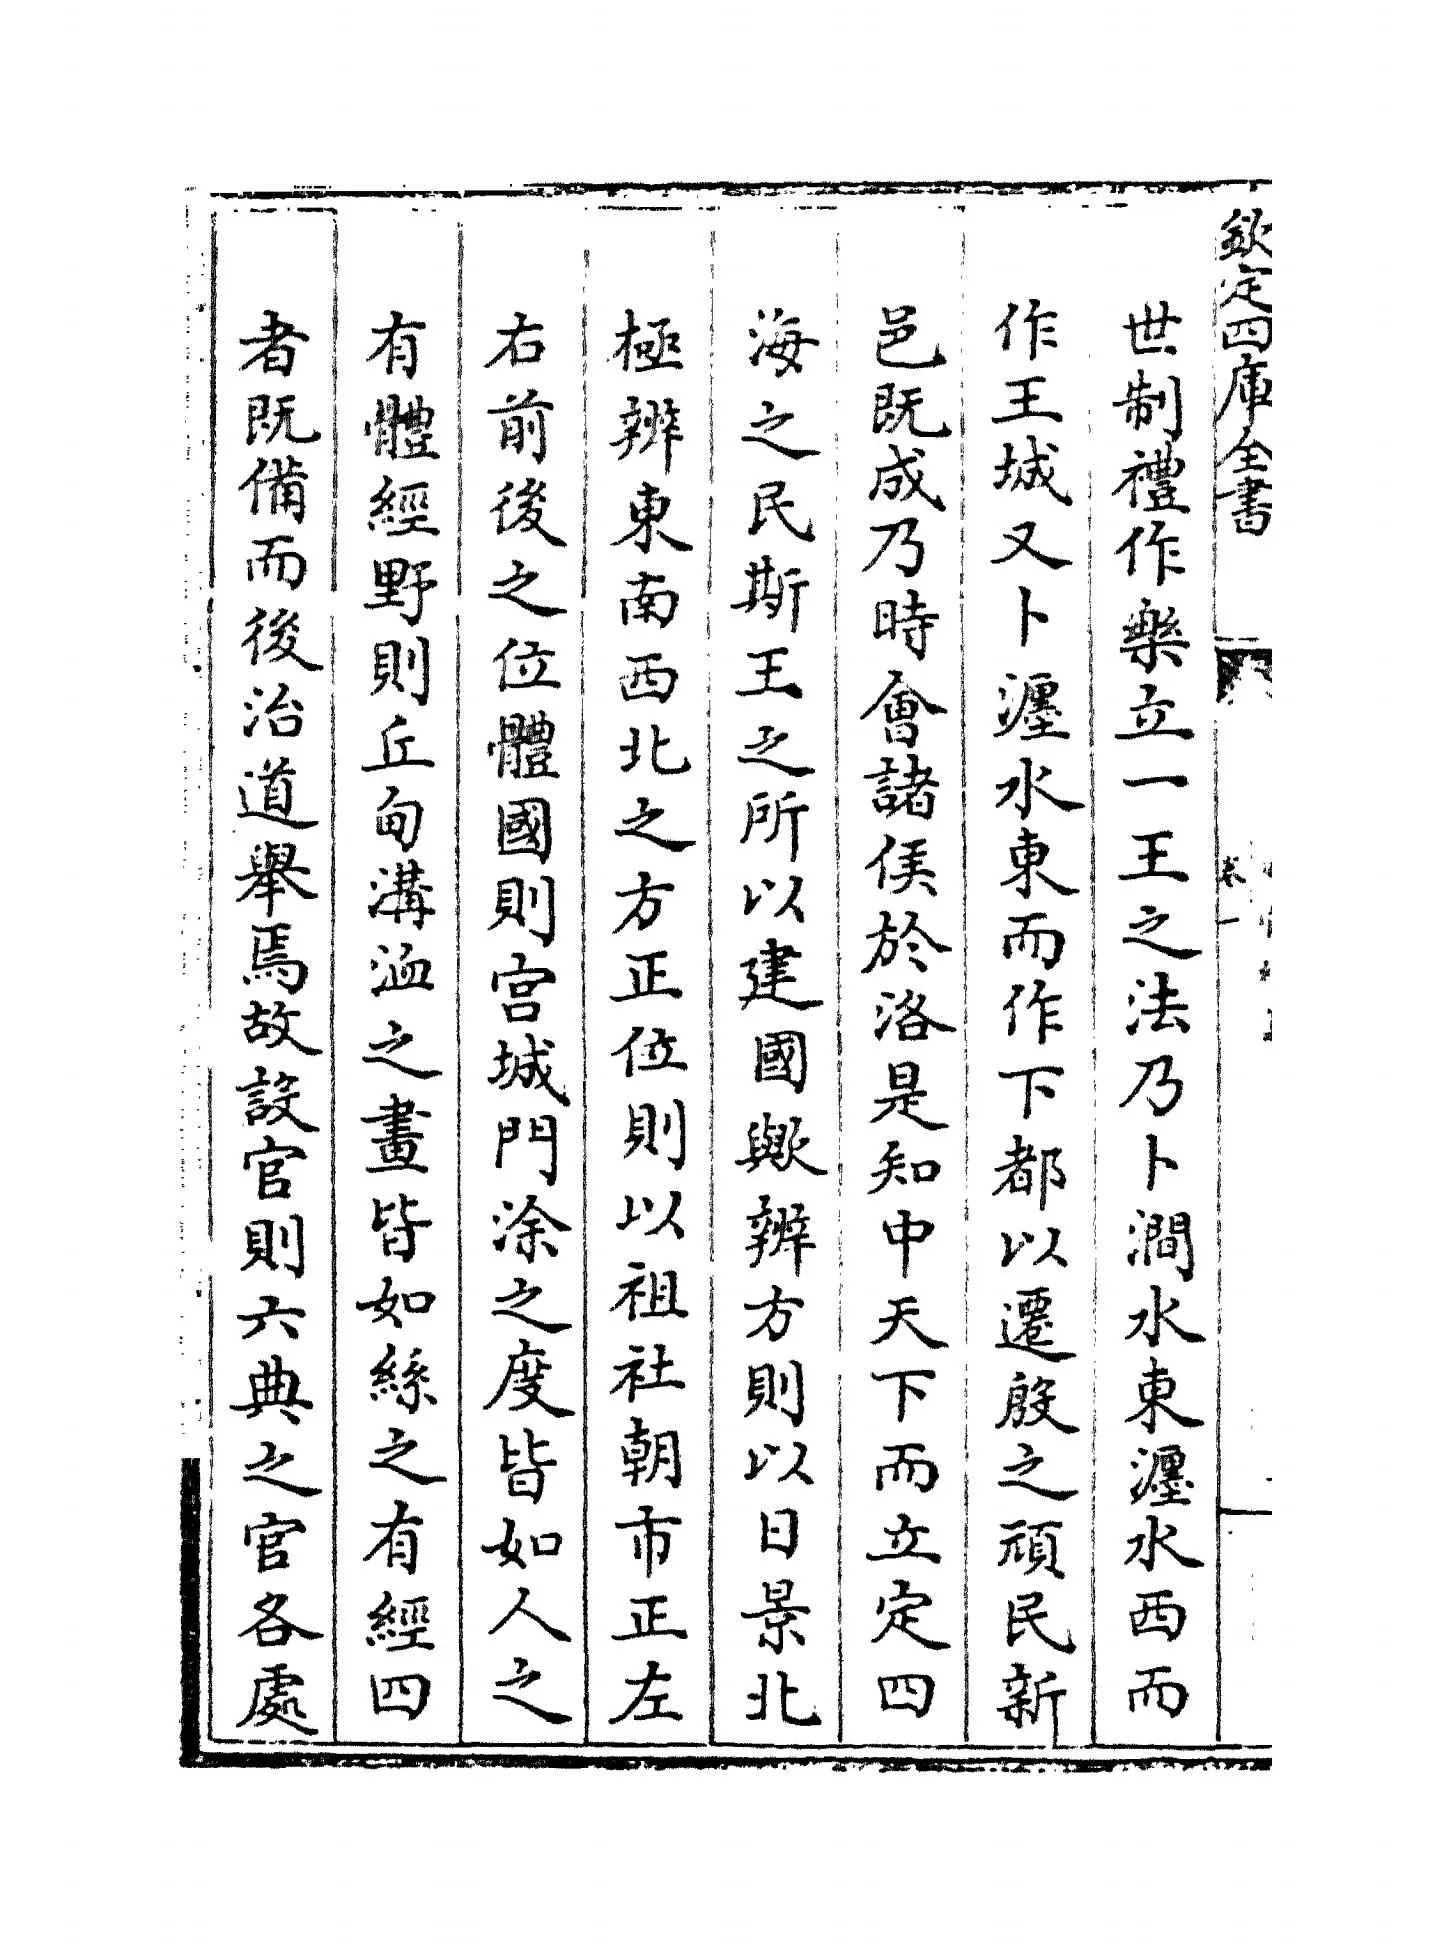 欽定四庫全書
卷一
世制禮作樂立一王之法乃卜澗水東瀍水西而
作王城又卜瀍水東而作下都以遷殷之頑民新
邑既成乃時會諸侯於洛是知中天下而立定四
海之民斯王之所以建國歟辨方則以日景北
極辨東南西北之方正位則以祖社朝市正左
右前後之位體國則宫城門涂之度皆如人之
有體經野則丘甸溝洫之畫皆如絲之有經四
者既備而後治道舉焉故設官則六典之官各處